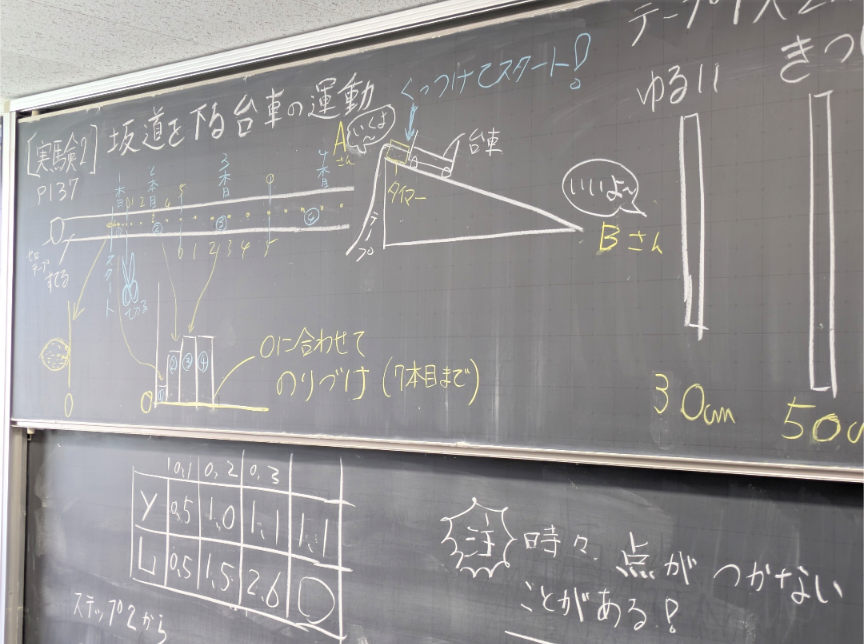 [実験2] 坂道を下る台車の運動
P137
Aさん
いくよ〜
くっつけてスタート!
台車
タイマー
テープ
いいよ〜
Bさん
1本目
2本目
3本目
4本目
0 1 2
4 5
② ③ ④
0 1 2 3 4 5
すてる
スタート
切る
0
0
① ② ③ ④
0に合わせて
のりづけ (7本目まで)
ゆるい
30cm
50c
0,1 0,2 0,3
Y 0.5 1.0 1.1 1.1
L 0.5 1.5 2.6 ○
ステップ2から
注 時々、点がつかない
ことがある!